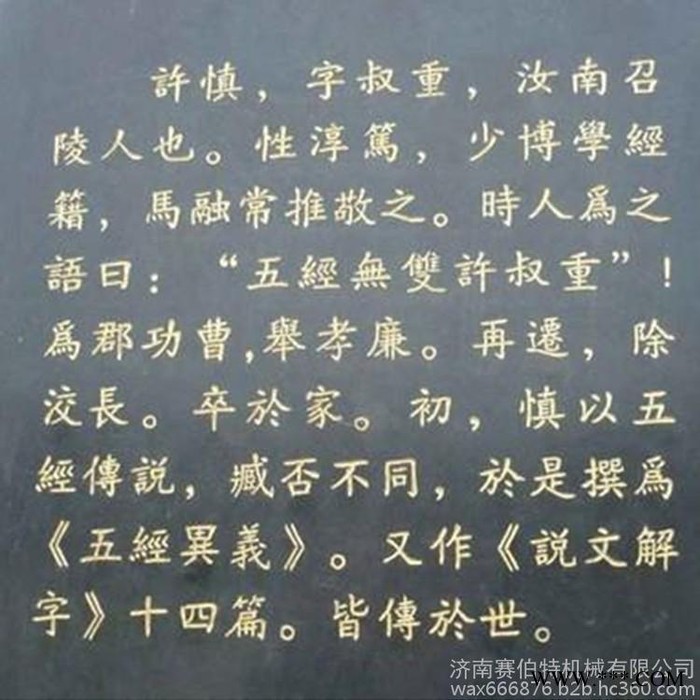 許慎，字叔重，汝南召
陵人也。性淳篤，少博學經
籍，馬融常推敬之。時人爲之
語曰：“五經無雙許叔重”！
爲郡功曹,舉孝廉。再遷，除
洨長。卒於家。初，慎以五
經傳説，臧否不同，於是撰爲
《五經異義》。又作《説文解
字》十四篇。皆傳於世。
济南赛伯特机械有限公司
wax666876.b2b.hc360.com